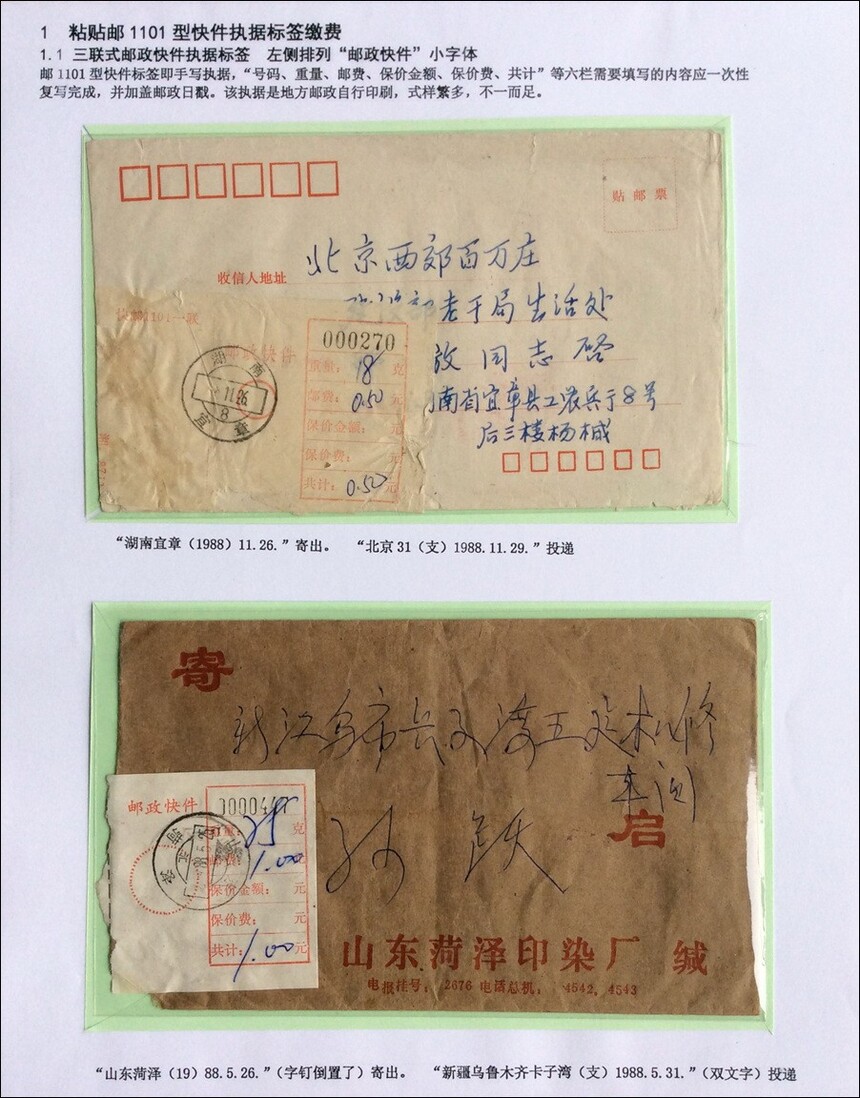 1 粘贴邮1101型快件执据标签缴费
1.1 三联式邮政快件执据标签 左侧排列“邮政快件”小字体
邮1101型快件标签即手写执据，“号码、重量、邮费、保价金额、保价费、共计”等六栏需要填写的内容应一次性
复写完成，并加盖邮政日戳。该执据是地方邮政自行印刷，式样繁多，不一而足。
贴邮票
北京西郊百万庄
收信人地址
老干局生活处
同志启
南省宜章县工农兵于8号
后三楼杨
快邮1101一联
邮政快件
000270
重量：18克
邮费：0.50
保价金额：元
保价费：元
共计：0.50元
湖南
11.26.
8
宜章
“湖南宜章（1988）11.26.”寄出。 “北京31（支）1988.11.29.”投递
寄
车间
启
邮政快件
克
1.00
保价金额：元
保价费：元
共计：1.00元
山东菏泽印染厂 缄
电报挂号：2676 电话总机：4542，4543
“山东菏泽（19）88.5.26.”（字钉倒置了）寄出。 “新疆乌鲁木齐卡子湾（支）1988.5.31.”（双文字）投递